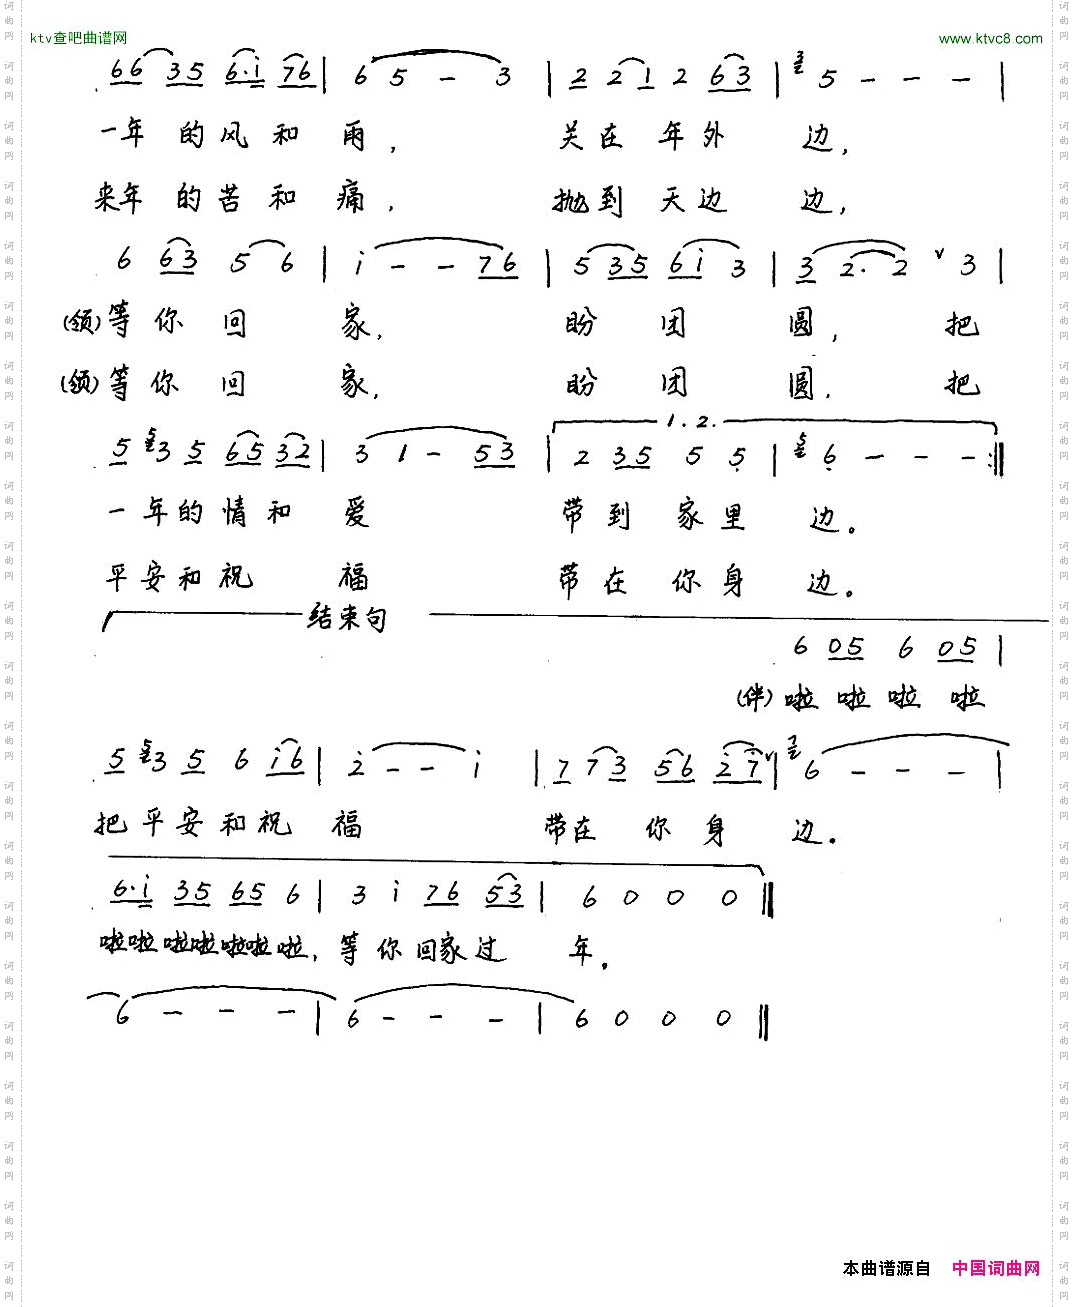 ktv查吧曲谱网 www.ktvc8.com
66 35 6·i 76 | 6 5 - 3 | 2 2 1 2 63 | 3 5 - - - |
一年 的风和 雨， 关在 年外 边，
来年 的苦和 痛， 抛到 天边 边，
6 63 5 6 | i - - 76 | 5 35 6i 3 | 3 2· 2 ∨ 3 |
(领)等你 回 家， 盼 团 圆， 把
(领)等你 回 家， 盼 团 圆， 把
1. 2.
5 5 3 5 65 32 | 3 1 - 53 | 2 35 5 5 | 5 6 - - - :||
一年的情和 爱 带到 家里 边。
平安和祝 福 带在 你身 边。
结束句
6 05 6 05 |
(伴)啦 啦 啦 啦
5 5 3 5 6 i6 | 2 - - i | 7 7 3 56 2 7 ∨ | 7 6 - - - |
把平安和祝 福 带在 你身 边。
6·i 35 65 6 | 3 i 76 53 | 6 0 0 0 ||
啦啦 啦啦啦啦 啦， 等你回家过 年。
6 - - - | 6 - - - | 6 0 0 0 ||
本曲谱源自 中国词曲网